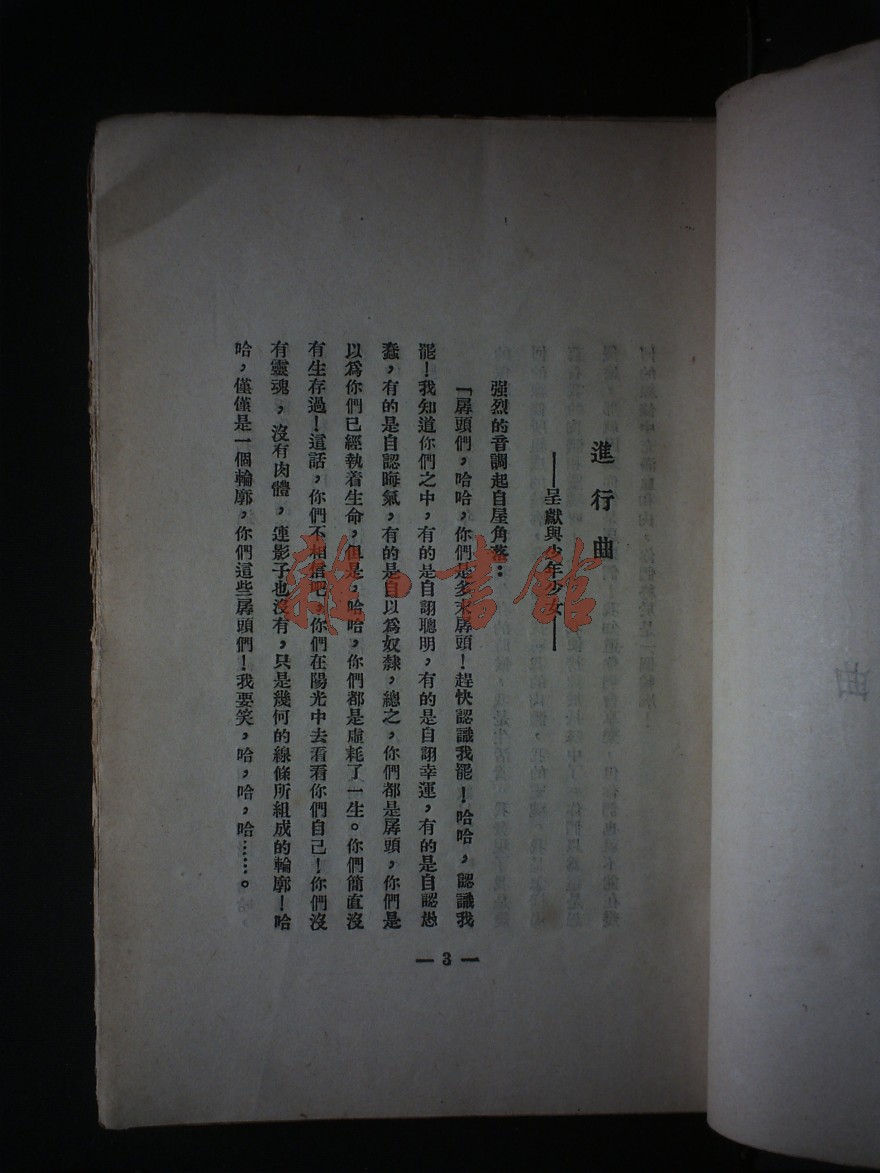 進行曲
——呈獻與少年少女——
強烈的音調起自屋角落：
「孱頭們，哈哈，你們是多末孱頭！趕快認識我罷！哈哈，認識我
罷！我知道你們之中，有的是自詡聰明，有的是自詡幸運，有的是自認愚
蠢，有的是自認晦氣，有的是自以爲奴隸，總之，你們都是孱頭，你們是
以爲你們已經執着生命，但是，哈哈，你們都是虛耗了一生。你們簡直沒
有生存過！這話，你們不相信吧，你們在陽光中去看看你們自己！你們沒
有靈魂，沒有肉體，連影子也沒有，只是幾何的線條所組成的輪廓！哈
哈，僅僅是一個輪廓，你們這些孱頭們！我要笑，哈，哈，哈……。
— 3 —
雜·書館
曲